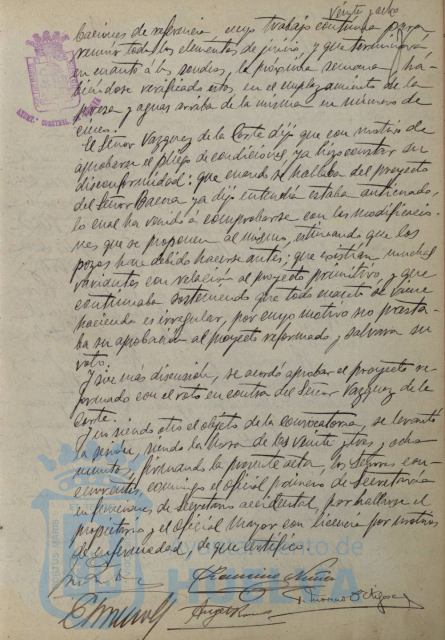 veinte y ocho
baciones de referencia cuyo trabajo continúa para
reunir todos los elementos de juicio, y que terminará
en cuanto á los sondeos, la próxima semana, ha-
biéndose verificado estos en el emplazamiento de la
presa y aguas arriba de la misma en número de
cinco.
El Señor Vazquez de la Corte dijo que con motivo de
aprobarse el pliego de condiciones ya hizo constar su
disconformidad: que cuando se hablaba del proyecto
del Señor Baena ya dijo entendía estaba anticuado,
lo cual ha venido á comprobarse con las modificacio-
nes que se proponen al mismo, estimando que los
pozos han debido hacerse antes; que existían muchas
variantes con relación al proyecto primitivo, y que
continuaba sosteniendo que todo cuanto se viene
haciendo es irregular, por cuyo motivo no presta-
ba su aprobación al proyecto reformado, y salvaba su
voto.
Y sin más discusión, se acordó aprobar el proyecto re-
formado con el voto en contra del Señor Vazquez de la
Corte.
Y no siendo otro el objeto de la convocatoria, se levantó
la sesión, siendo la hora de las veinte y tres y ocho
minutos, firmando la presente acta, los Señores con-
currentes, conmigo el Oficial primero de Secretaría
en funciones de Secretario accidental, por hallarse el
propietario y el Oficial Mayor con licencia por motivos
de enfermedad, de que certifico.
Ayuntamiento de
HUELVA